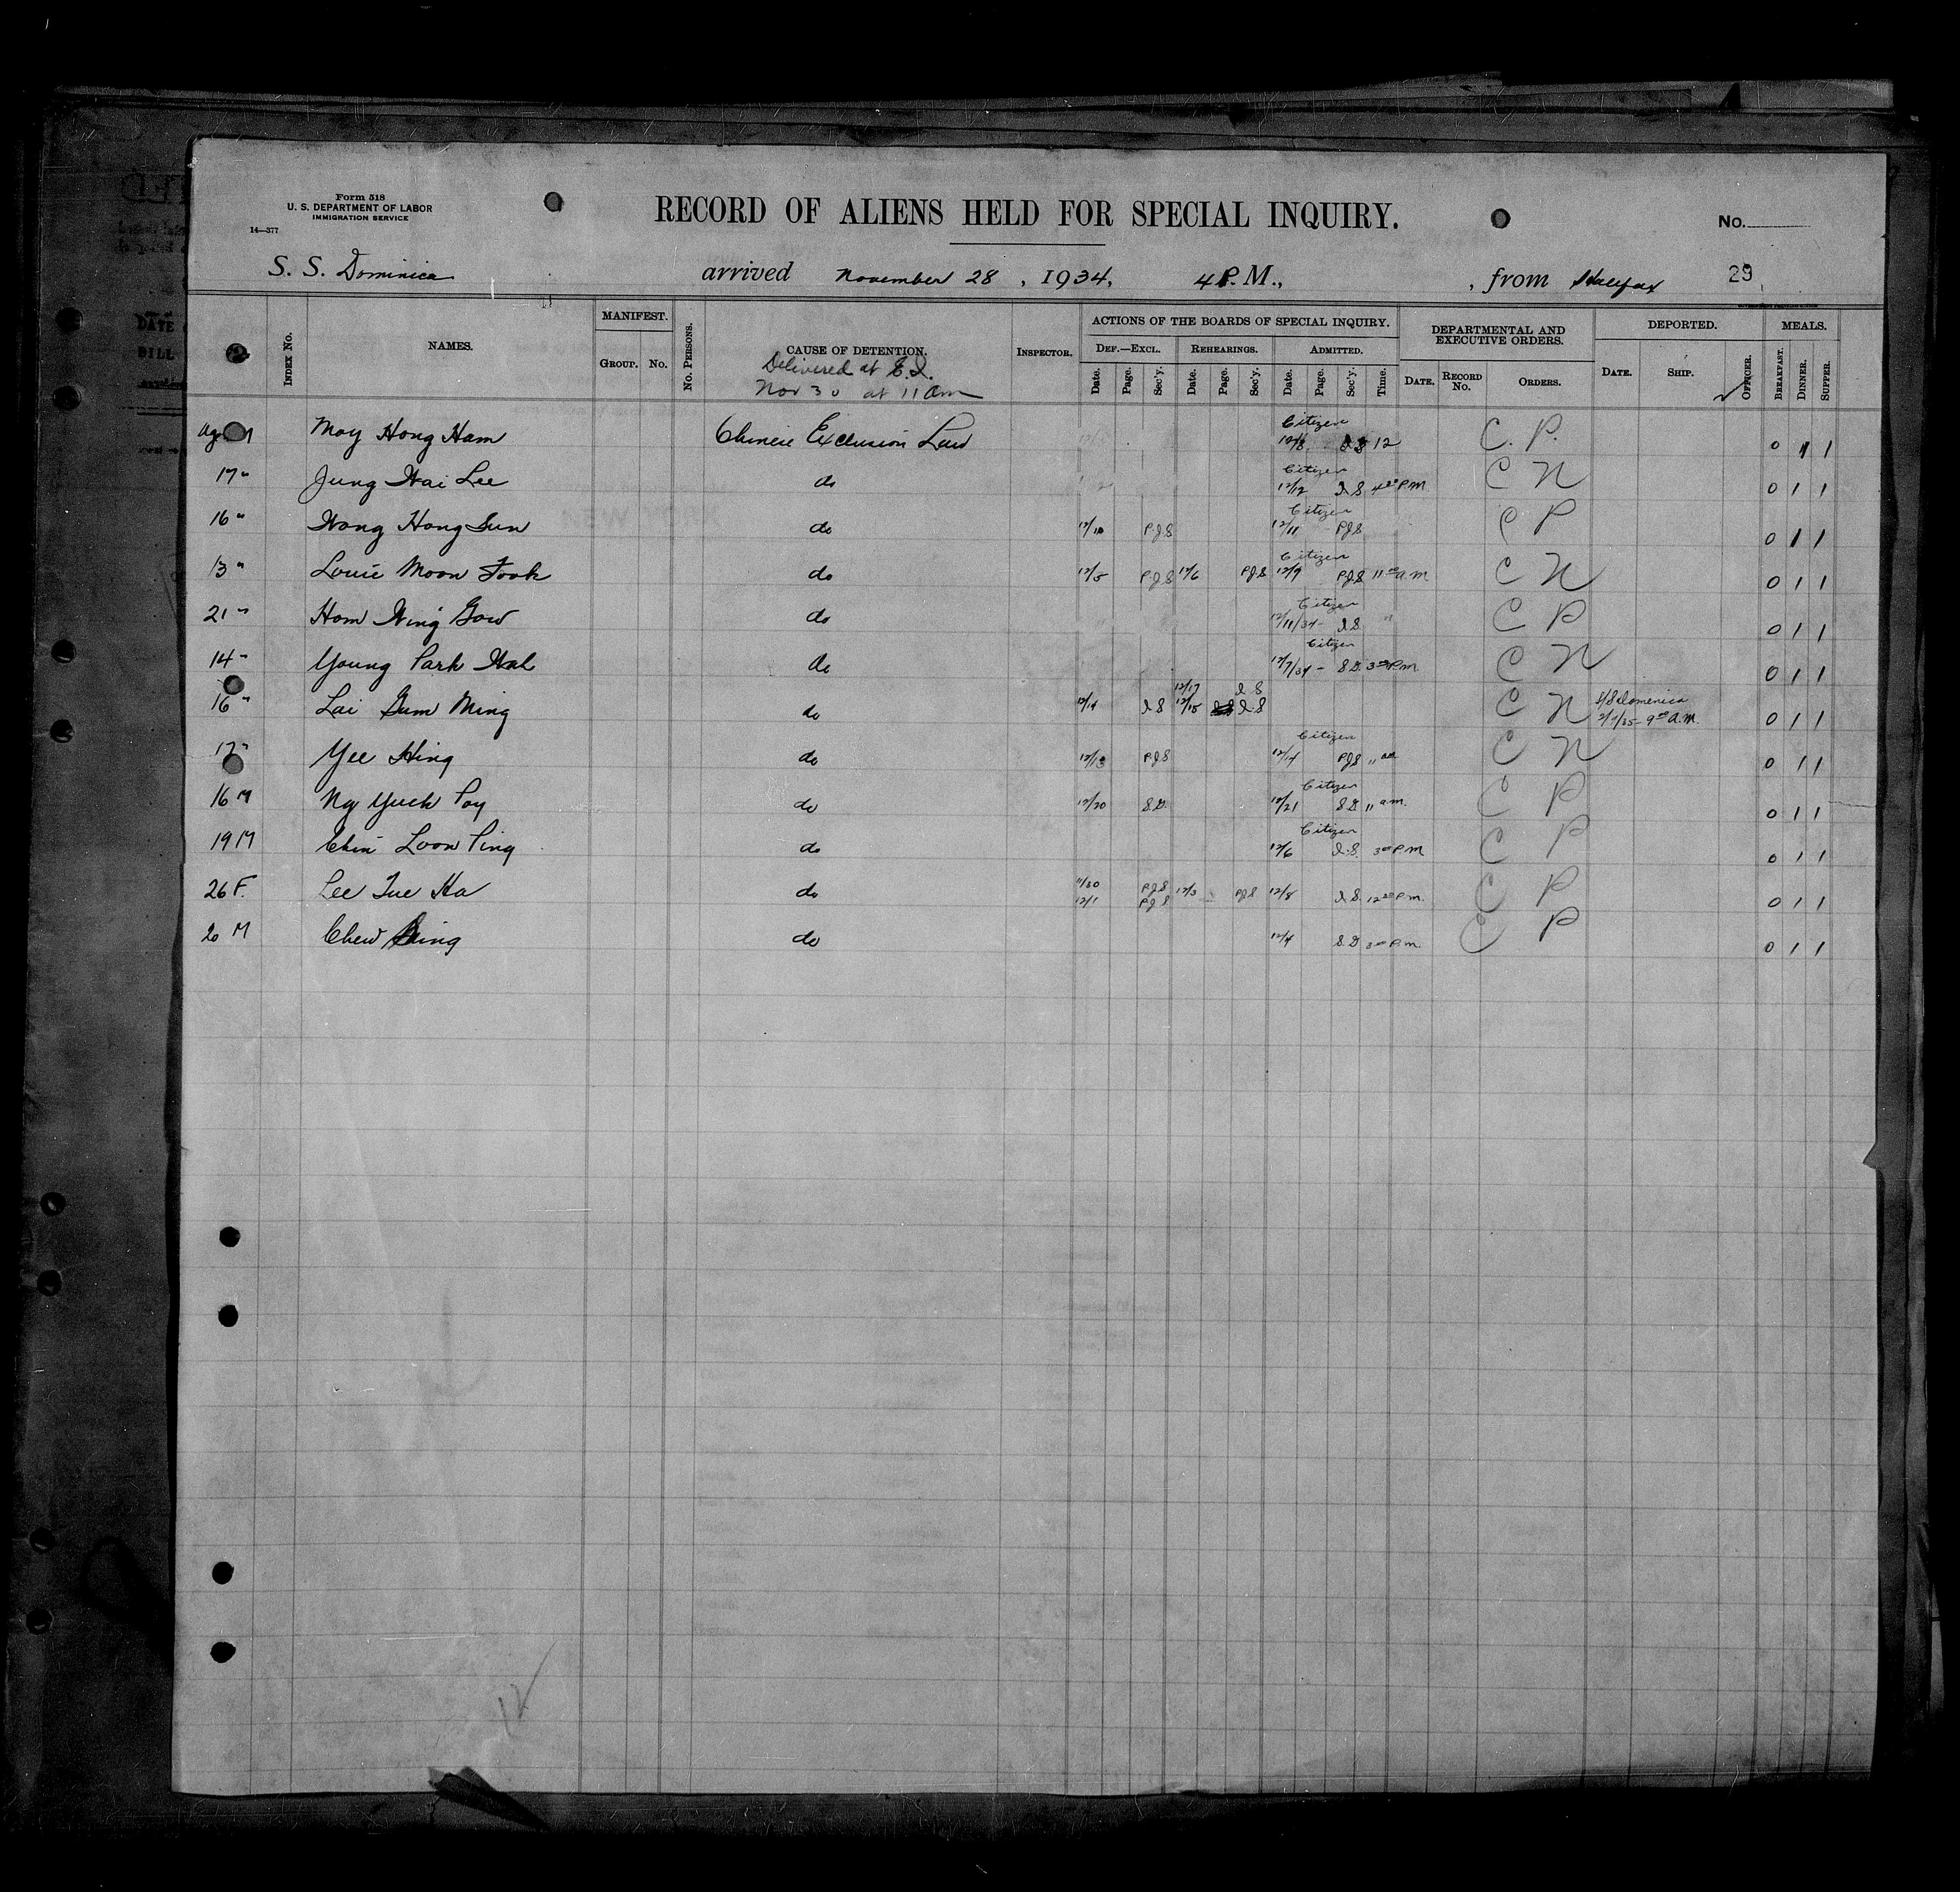 Form 518
U. S. DEPARTMENT OF LABOR
IMMIGRATION SERVICE
14—377
RECORD OF ALIENS HELD FOR SPECIAL INQUIRY.
No.
S. S. Dominica arrived November 28, 1934, 4 P. M., , from Halifax 29
INDEX NO. NAMES. MANIFEST. GROUP. NO. NO. PERSONS. CAUSE OF DETENTION. INSPECTOR. ACTIONS OF THE BOARDS OF SPECIAL INQUIRY. DEPARTMENTAL AND EXECUTIVE ORDERS. DEPORTED. MEALS.
DEF.—EXCL. REHEARINGS. ADMITTED.
Date. Page. Sec'y. Date. Page. Sec'y. Date. Page. Sec'y. Time. DATE. RECORD NO. ORDERS. DATE. SHIP. OFFICER. BREAKFAST. DINNER. SUPPER.
Delivered at E.I.
Nov 30 at 11 am
May Hong Ham Chinese Exclusion Law Citizen 12/8 12 C. P. 0 1 1
17 " Jung Wai Lee do Citizen 12/12 I S 4 P.M. C N 0 1 1
16 " Wong Hong Sun do 12/10 PJS Citizen 12/11 PJS C P 0 1 1
13 " Louie Moon Fook do 12/5 PJS 12/6 PJS Citizen 12/9 PJS 11 a.m. C N 0 1 1
21 " Hom Wing Gow do Citizen 12/11/34 - I S. " C P 0 1 1
14 " Young Park Wah do Citizen 12/7/34 - S D. 3 P.M. C N 0 1 1
16 " Lai Gum Ming do 12/14 I S 12/17 I S 12/18 I S C N S/S Domenica 2/7/35 - 9 A.M. 0 1 1
17 " Yee Hing do 12/13 PJS Citizen 12/14 PJS 11 am C N 0 1 1
16 M Ng Yuck Poy do 12/20 S.D. Citizen 12/21 S D 11 a.m. C P 0 1 1
19 M Chin Loon Ping do Citizen 12/6 I.S. 3 P.M C P 0 1 1
26 F. Lee Tue Ha do 11/30 PJS 12/1 PJS 12/3 PJS 12/8 I S. 12 P.m. C P 0 1 1
20 M Chew Ming do 12/4 S.D 3 P.m. C P 0 1 1
12